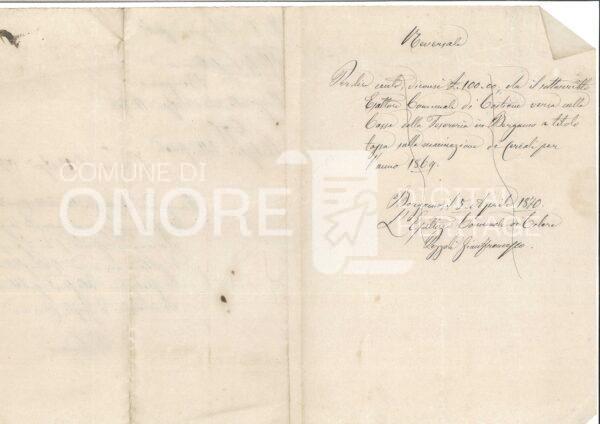 Reversale
Per lire cento, diconsi £. 100.00, che il sottoscritto
Esattore Comunale di Castione versa nella
Cassa della Tesoreria in Bergamo a titolo
tassa sulla macinazione de Cereali per
l'anno 1869.
Bergamo, il 5 Aprile 1870
L'Esattore Comunale di
Gianfrancesco
COMUNE DI
ONORE
DIGITAL
HERITAGE